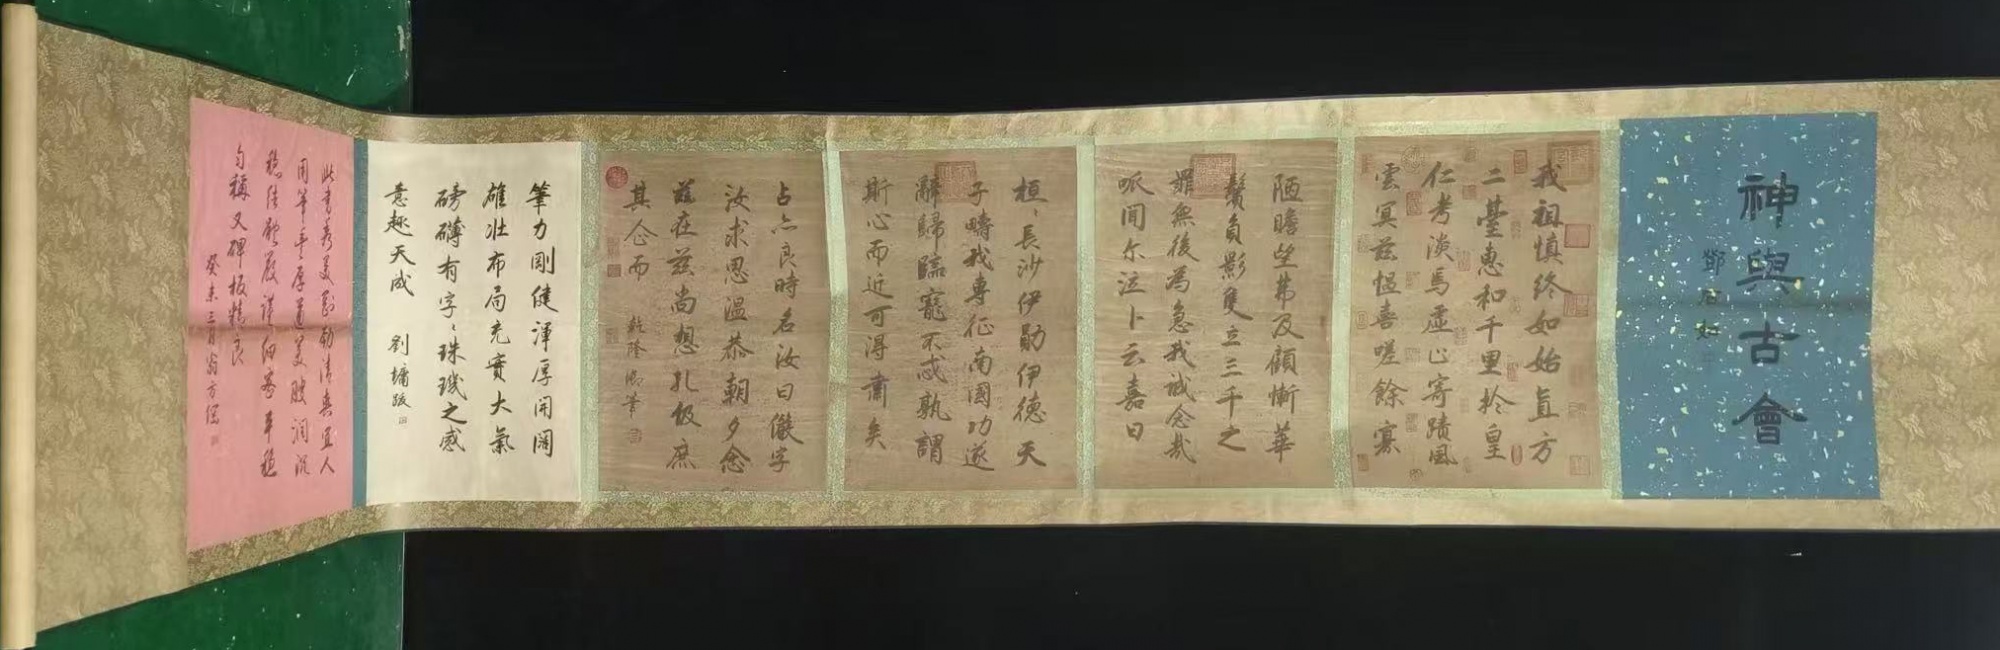 神與古會
鄧石如
我祖慎終如始貞方
二臺惠和千里於皇
仁考淡焉虛止寄蹟風
雲冥茲慍喜嗟餘寡
陋瞻望弗及顧慚華
鬢負影隻立三千之
罪無後為急我誠念哉
呱聞尔泣卜云嘉日
桓〻長沙伊勛伊德天
子疇我專征南國功遂
辭歸臨寵不忒孰謂
斯心而近可得肅矣
占亦良時名汝曰儼字
汝求思溫恭朝夕念
茲在茲尚想孔伋庶
其企而
乾隆御筆
筆力剛健渾厚開闊
雄壯布局充實大氣
磅礴有字〻珠璣之感
意趣天成
劉墉跋
此書秀美勁清爽宜人
用筆豐厚道美腴潤沉
穩結體嚴謹細密平穩
勻稱又碑板精良
癸未三月翁方綱